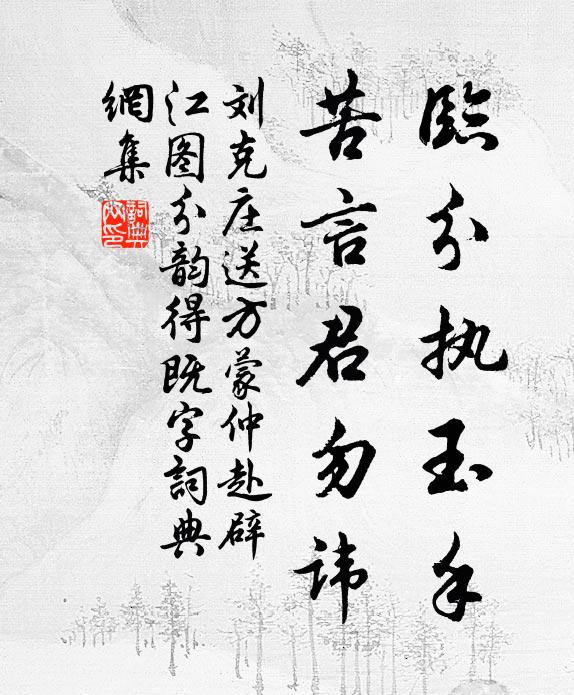 臨分执玉手
苦言君勿讳
刘克庄送方蒙仲赴辟
江图分韵得既字詞典
網集
詞典网印